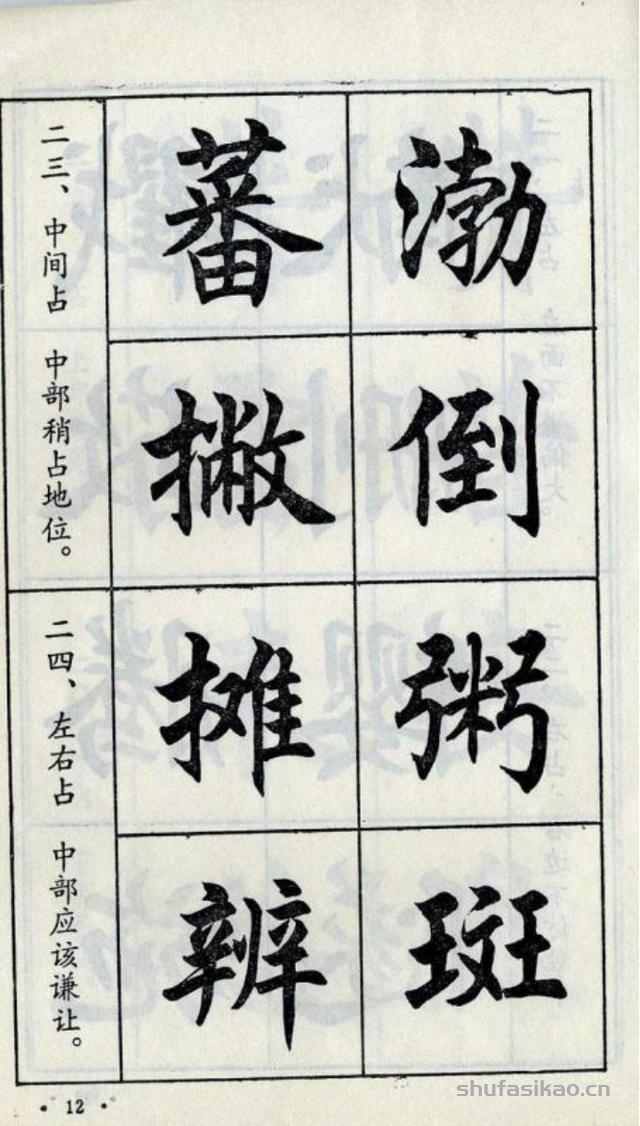 二三、中间占 中部稍占地位。
蕃 渤
撇 倒
二四、左右占 中部应该谦让。
摊 粥
辨 斑
• 12 •
shufasikao.cn